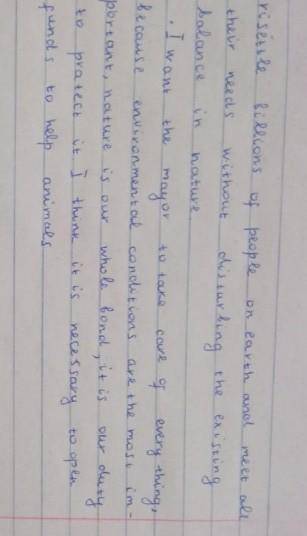 risettle billions of people on earth and meet all
their needs without disturbing the existing
balance in nature.
. I want the mayor to take care of every thing,
because environmental conditions are the most im-
portant, nature is our whole bond, it is our duty
to pratect it I think it is necessary to open
funds to help animals